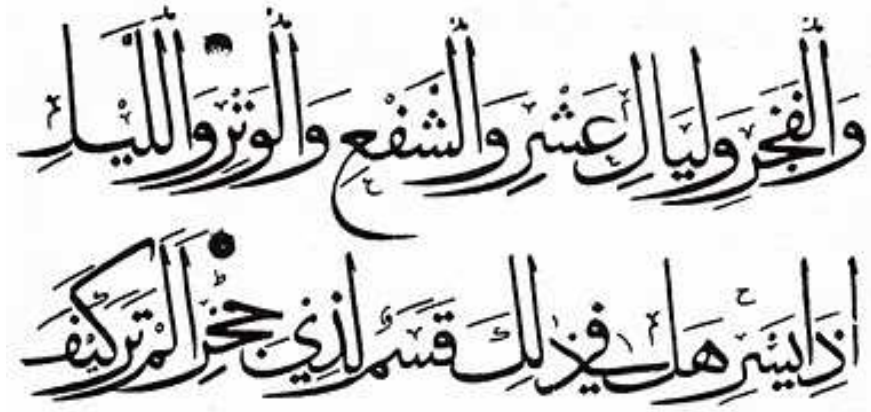 وَالْفَجْرِ وَلَيَالٍ عَشْرٍ وَالشَّفْعِ وَالْوَتْرِ وَاللَّيْلِ
اِذَا يَسْرِ هَلْ فِي ذٰلِكَ قَسَمٌ لِذِي حِجْرٍ اَلَمْ تَرَ كَيْفَ